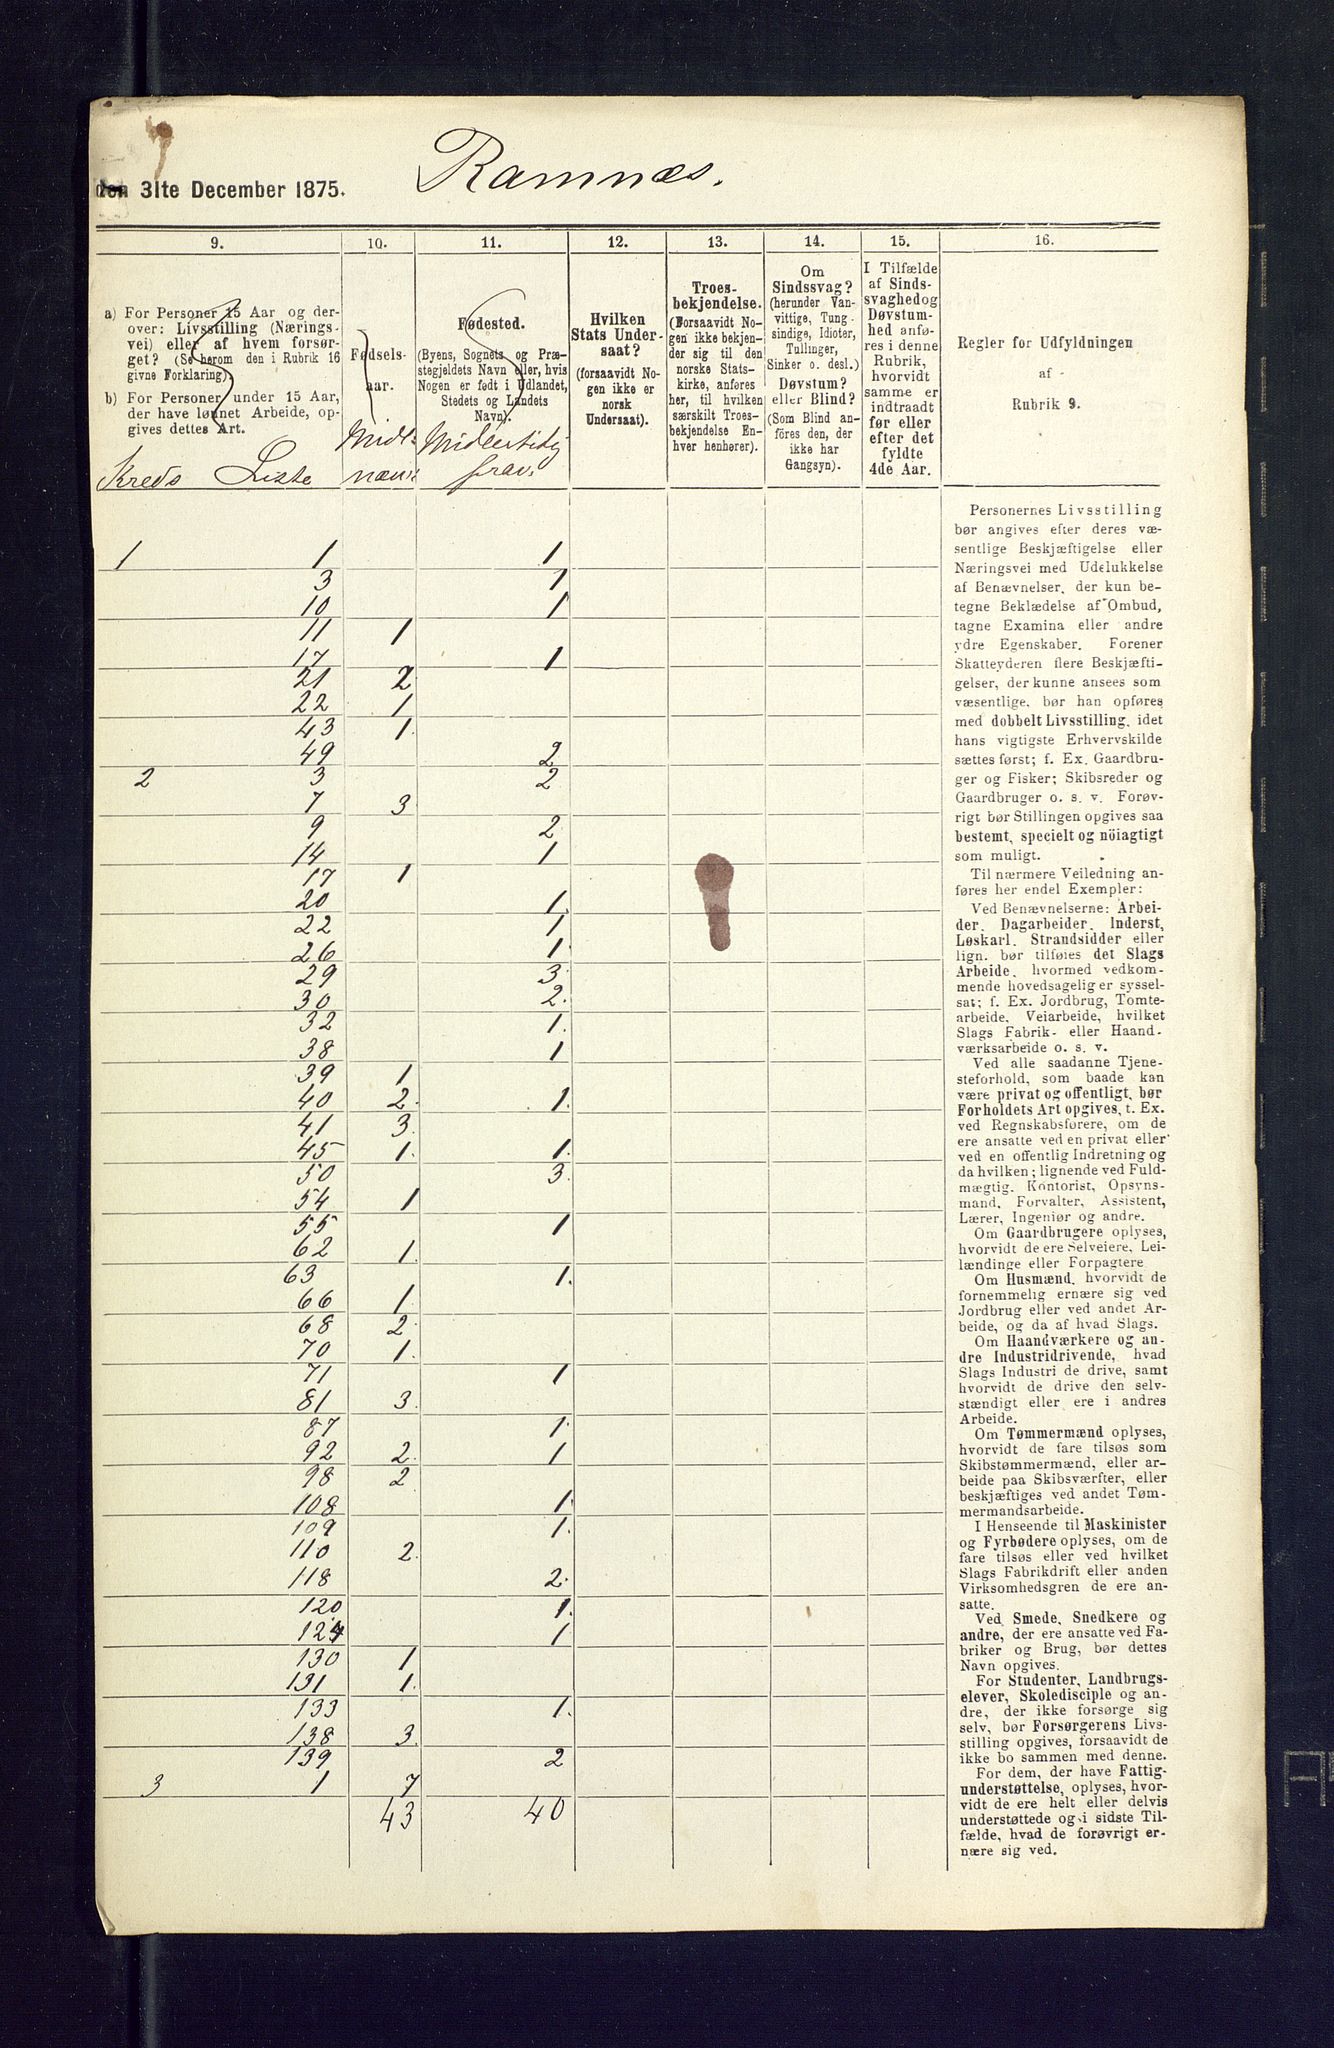 Ramnæs.
den 31te December 1875.
9. 10. 11. 12. 13. 14. 15. 16.
a) For Personer 15 Aar og der-
over: Livsstilling (Nærings-
vei) eller af hvem forsør-
get? (Se herom den i Rubrik 16
givne Forklaring).
b) For Personer under 15 Aar,
der have lønnet Arbeide, op-
gives dettes Art.
Kreds Liste
Fødsels-
aar.
Midl.
nærv.
Fødested.
(Byens, Sognets og Præ-
stegjeldets Navn eller, hvis
Nogen er født i Udlandet,
Stedets og Landets
Navn).
Midlertidig
frav.
Hvilken
Stats Under-
saat?
(forsaavidt No-
gen ikke er
norsk
Undersaat).
Troes-
bekjendelse.
(Forsaavidt No-
gen ikke bekjen-
der sig til den
norske Stats-
kirke, anføres
her, til hvilken
særskilt Troes-
bekjendelse En-
hver henhører).
Om
Sindssvag?
(herunder Van-
vittige, Tung-
sindige, Idioter,
Tullinger,
Sinker o. desl.)
Døvstum?
eller Blind?
(Som Blind an-
føres den, der
ikke har
Gangsyn).
I Tilfælde
af Sinds-
svaghed og
Døvstum-
hed anfø-
res i denne
Rubrik,
hvorvidt
samme er
indtraadt
før eller
efter det
fyldte
4de Aar.
Regler for Udfyldningen
af
Rubrik 9.
1 1 1
3 1
10 1
11 1
17 1
21 2
22 1
43 1.
49 2
2 3 2
7 3
9 2.
14 1
17 1
20 1.
22 1
26 1.
29 3.
30 2.
32 1.
38 1
39 1
40 2. 1.
41 3.
45 1. 1.
50 3.
54 1
55 1
62 1.
63 1.
66 1.
68 2.
70 1.
71 1
81 3.
87 1.
92 2. 1
98 2
108 1.
109 1.
110 2.
118 2.
120 1.
124 1
130 1
131 1.
133 1.
138 3.
139 2
3 1 7
43 40
Personernes Livsstilling
bør angives efter deres væ-
sentlige Beskjæftigelse eller
Næringsvei med Udelukkelse
af Benævnelser, der kun be-
tegne Beklædelse af Ombud,
tagne Examina eller andre
ydre Egenskaber. Forener
Skatteyderen flere Beskjæfti-
gelser, der kunne ansees som
væsentlige, bør han opføres
med dobbelt Livsstilling, idet
hans vigtigste Erhvervskilde
sættes først; f. Ex. Gaardbru-
ger og Fisker; Skibsreder og
Gaardbruger o. s. v. Forøv-
rigt bør Stillingen opgives saa
bestemt, specielt og nöiagtigt
som muligt.
Til nærmere Veiledning an-
føres her endel Exempler:
Ved Benævnelserne: Arbei-
der, Dagarbeider, Inderst,
Løskarl, Strandsidder eller
lign. bør tilføies det Slags
Arbeide, hvormed vedkom-
mende hovedsagelig er syssel-
sat; f. Ex. Jordbrug, Tomte-
arbeide, Veiarbeide, hvilket
Slags Fabrik- eller Haand-
værksarbeide o. s. v.
Ved alle saadanne Tjene-
steforhold, som baade kan
være privat og offentligt, bør
Forholdets Art opgives, t. Ex.
ved Regnskabsførere, om de
ere ansatte ved en privat eller
ved en offentlig Indretning og
da hvilken; lignende ved Fuld-
mægtig, Kontorist, Opsyns-
mand, Forvalter, Assistent,
Lærer, Ingeniør og andre.
Om Gaardbrugere oplyses,
hvorvidt de ere Selveiere, Lei-
lændinge eller Forpagtere
Om Husmænd, hvorvidt de
fornemmelig ernære sig ved
Jordbrug eller ved andet Ar-
beide, og da af hvad Slags.
Om Haandværkere og an-
dre Industridrivende, hvad
Slags Industri de drive, samt
hvorvidt de drive den selv-
stændigt eller ere i andres
Arbeide.
Om Tømmermænd oplyses,
hvorvidt de fare tilsøs som
Skibstømmermænd, eller ar-
beide paa Skibsværfter, eller
beskjæftiges ved andet Tøm-
mermandsarbeide.
I Henseende til Maskinister
og Fyrbødere oplyses, om de
fare tilsøs eller ved hvilket
Slags Fabrikdrift eller anden
Virksomhedsgren de ere an-
satte.
Ved Smede, Snedkere og
andre, der ere ansatte ved Fa-
briker og Brug, bør dettes
Navn opgives.
For Studenter, Landbrugs-
elever, Skoledisciple og an-
dre, der ikke forsørge sig
selv, bør Forsørgerens Livs-
stilling opgives, forsaavidt de
ikke bo sammen med denne.
For dem, der have Fattig-
understøttelse, oplyses, hvor-
vidt de ere helt eller delvis
understøttede og i sidste Til-
fælde, hvad de forøvrigt er-
nære sig ved.